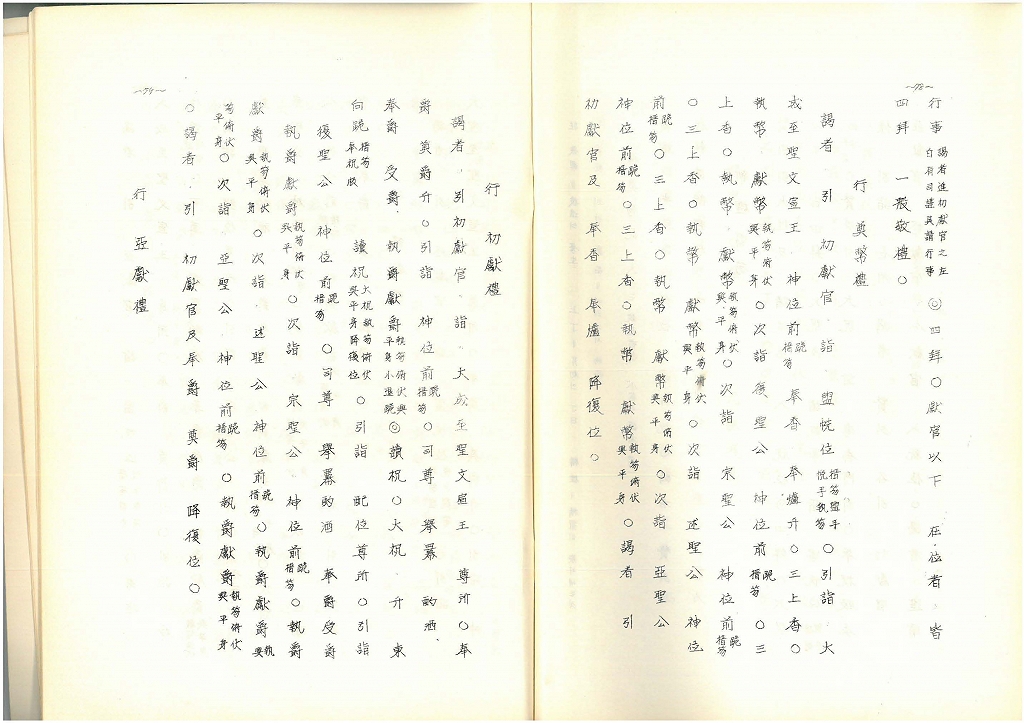 ~78~
行事 謁者進初獻官之左 白有司謹具請行事 ◎四拜○獻官以下 在位者 皆
四拜 一般敬禮○
行 奠幣禮
謁者 引 初獻官 詣 盥帨位 搢笏盥手 帨手執笏 ○引詣 大
成至聖文宣王 神位前 跪搢笏 奉香 奉爐升○三上香○
執幣 獻幣 執笏俯伏興平身 ○次詣 復聖公 神位前 跪搢笏 ○三
上香○執幣 獻幣 執笏俯伏興平身 ○次詣 宗聖公 神位前 跪搢笏
○三上香○執幣 獻幣 執笏俯伏興平身 ○次詣 述聖公 神位
前 跪搢笏 ○三上香○執幣 獻幣 執笏俯伏興平身 ○次詣 亞聖公
神位前 跪搢笏 ○三上香○執幣 獻幣 執笏俯伏興平身 ○謁者 引
初獻官及 奉香 奉爐 降復位○
~79~
行 初獻禮
謁者 引初獻官 詣 大成至聖文宣王 尊所○奉
爵 奠爵升○引詣 神位前 跪搢笏 ○司尊 擧冪 酌酒
奉爵 受爵 執爵獻爵 執笏俯伏興平身小進跪 ◎讀祝○大祝 升 東
向跪 搢笏奉祝版 讀祝 大祝執笏俯伏興平身降復位 ○引詣 配位尊所○引詣
復聖公 神位前 跪搢笏 ○司尊 擧冪酌酒 奉爵受爵
執爵獻爵 執笏俯伏興平身 ○次詣 宗聖公 神位前 跪搢笏 ○執爵
獻爵 執笏俯伏興平身 ○次詣 述聖公 神位前 跪搢笏 ○執爵獻爵 執興
笏俯伏平身 ○次詣 亞聖公 神位前 跪搢笏 ○執爵獻爵 執笏俯伏興平身
○謁者 引 初獻官及奉爵 奠爵 降復位○
行 亞獻禮